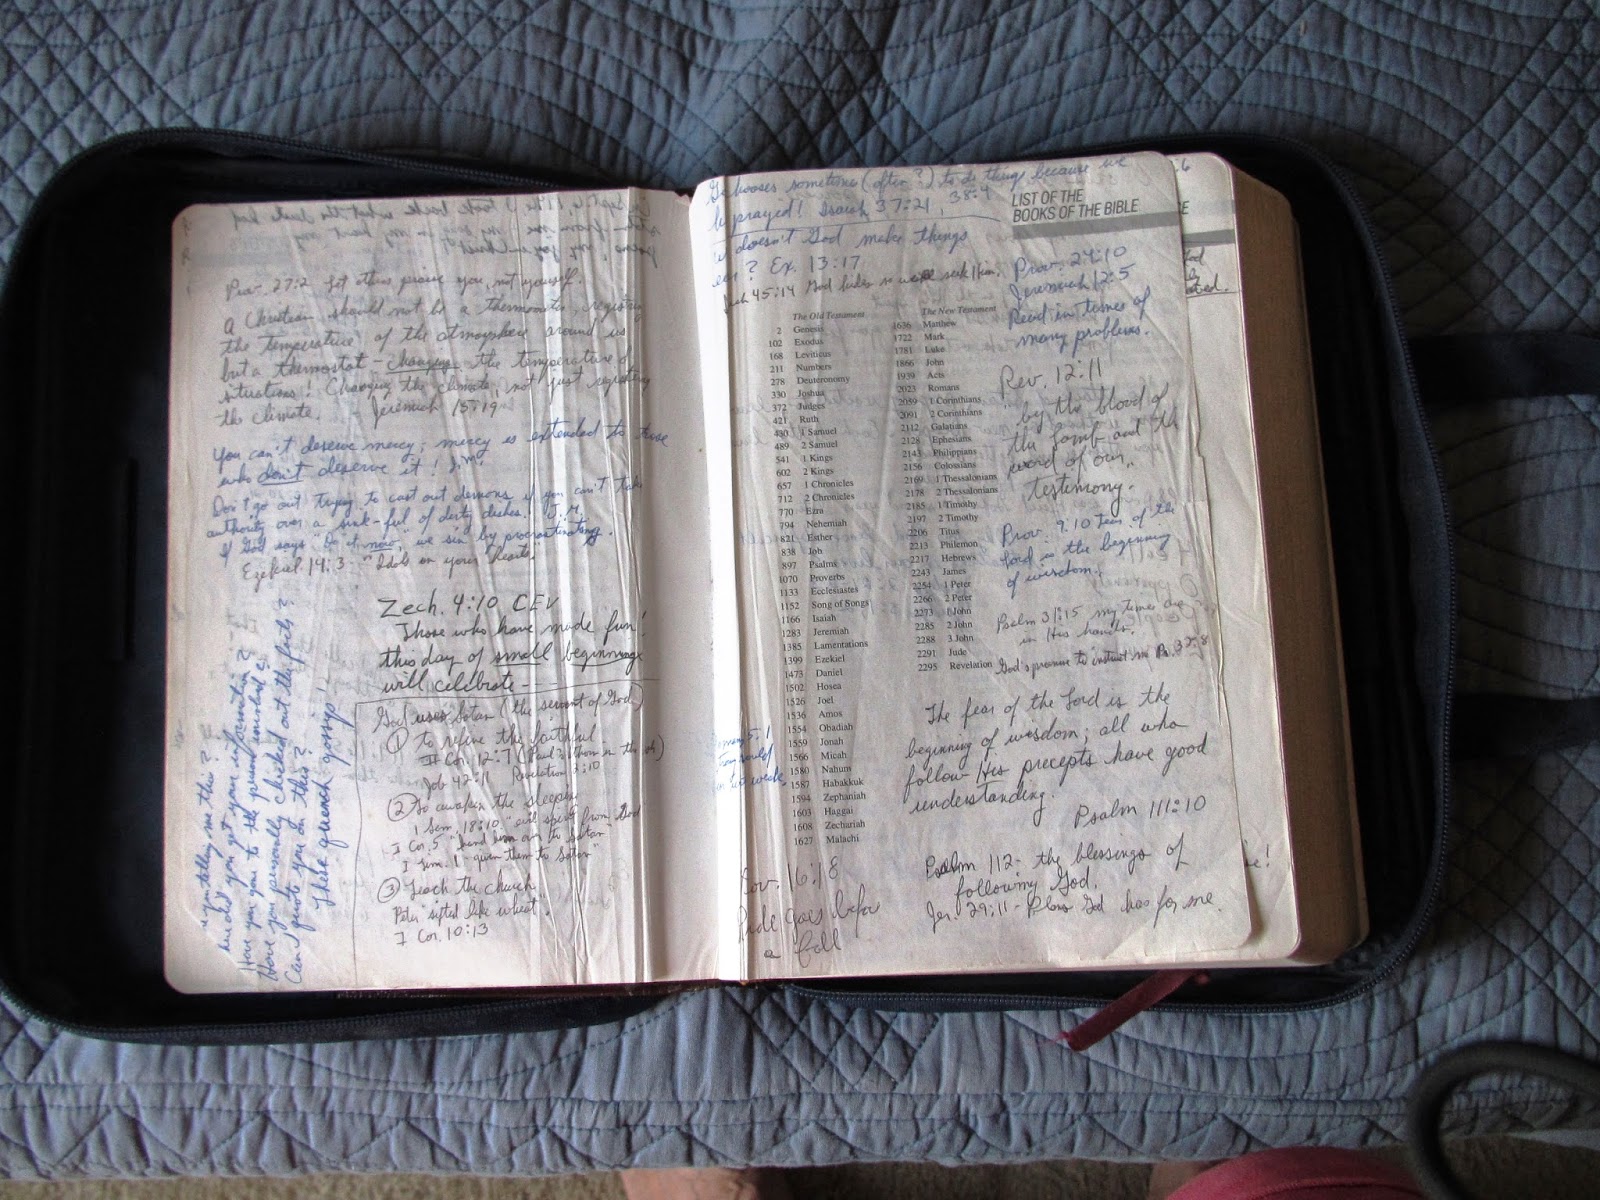 Prov. 27:2 Let others praise you, not yourself.
A Christian should not be a thermometer, registering
the temperature of the atmosphere around us
but a thermostat - changing the temperature of
situations! Changing the climate, not just registering
the climate. - Jeremiah 15:19
You can't deserve mercy; mercy is extended to those
who don't deserve it! J.M.
Don't go out trying to cast out demons if you can't take
authority over a sink-ful of dirty dishes! J.M.
If God says "Do it now", we sin by procrastinating.
Ezekiel 14:3 - "Idols in your hearts.
Zech. 4:10 CEV
Those who have made fun!
this day of small beginnings
will celebrate
God uses Satan (the servant of God)
① to refine the faithful
II Cor. 12:7 (Paul's thorn in the
Job 42:11 Revelation 2:10
② To awaken the sleeping
1 Sam. 18:10 "evil spirit from God
I Cor. 5 "hand him over to Satan"
I Tim. 1 - given them to Satan"
③ Teach the church
Peter "sifted like wheat".
I Cor. 10:13
you telling me this?
did you get your information?
Have you gone to the person involved?
Have you personally checked out the facts?
Can I quote you on this?
These quench gossip!
chooses sometimes (often?) to do things because we
prayed! Isaiah 37:21, 38:4
doesn't God make things
? Ex. 13:17
45:14 God hides so we'll seek Him.
LIST OF THE
BOOKS OF THE BIBLE
Prov. 24:10
Jeremiah 12:5
Read in times of
many problems.
The Old Testament
2 Genesis
102 Exodus
168 Leviticus
211 Numbers
278 Deuteronomy
330 Joshua
372 Judges
421 Ruth
430 1 Samuel
489 2 Samuel
541 1 Kings
602 2 Kings
657 1 Chronicles
712 2 Chronicles
770 Ezra
794 Nehemiah
821 Esther
838 Job
897 Psalms
1070 Proverbs
1133 Ecclesiastes
1152 Song of Songs
1166 Isaiah
1283 Jeremiah
1385 Lamentations
1399 Ezekiel
1473 Daniel
1502 Hosea
1526 Joel
1536 Amos
1554 Obadiah
1559 Jonah
1566 Micah
1580 Nahum
1587 Habakkuk
1594 Zephaniah
1603 Haggai
1608 Zechariah
1627 Malachi
The New Testament
1636 Matthew
1722 Mark
1781 Luke
1866 John
1939 Acts
2023 Romans
2059 1 Corinthians
2091 2 Corinthians
2112 Galatians
2128 Ephesians
2143 Philippians
2156 Colossians
2169 1 Thessalonians
2178 2 Thessalonians
2185 1 Timothy
2197 2 Timothy
2206 Titus
2213 Philemon
2217 Hebrews
2243 James
2254 1 Peter
2266 2 Peter
2273 1 John
2285 2 John
2288 3 John
2291 Jude
2295 Revelation
Rev. 12:11
"by the blood of
the Lamb and the
word of our
testimony."
Prov. 9:10 Fear of the
Lord is the beginning
of wisdom.
Psalm 31:15 my times are
in His hands.
God's promise to instruct me Ps. 32:8
The fear of the Lord is the
beginning of wisdom; all who
follow His precepts have good
understanding.
Psalm 111:10
Psalm 112 - the blessings of
following God.
Jer. 29:11 - Plans God has for me.
Prov. 16:18
Pride goes before
a fall